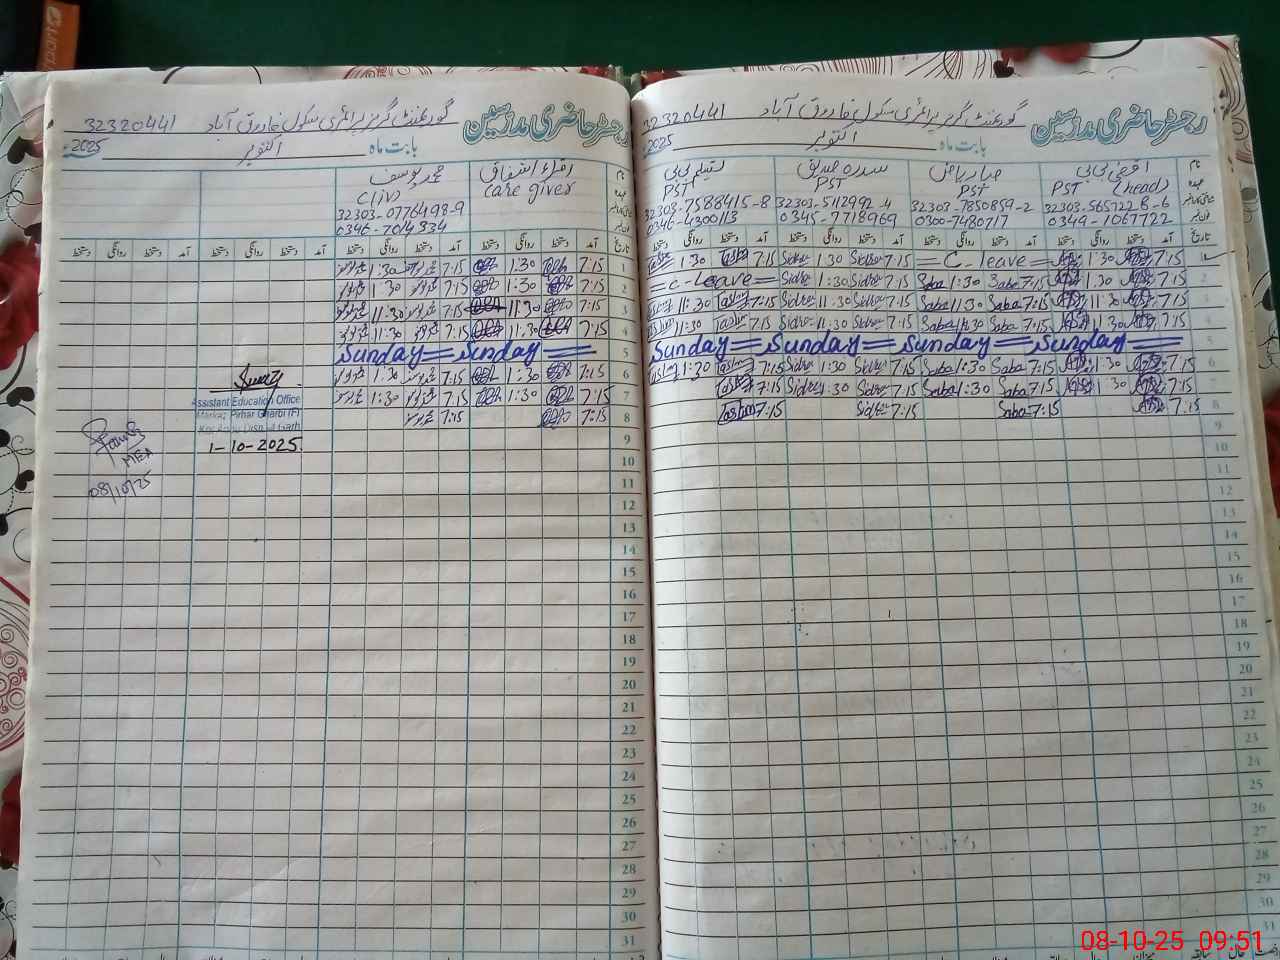 رجسٹر حاضری مدرسین گورنمنٹ گرلز پرائمری سکول فاروق آباد 32320441
بابت ماہ اکتوبر 2025
نام اقصٰی بی بی صبا ریاض سدرہ صدیق تسلیم بی بی
عہدہ PST (head) PST PST PST
32303-5657228-6 32303-7850859-2 32303-5112992-4 32303-7588415-8
0349-1067722 0300-7480717 0345-7718969 0346-4300113
تاریخ آمد دستخط روانگی دستخط آمد دستخط روانگی دستخط آمد دستخط روانگی دستخط آمد دستخط روانگی دستخط
1 7:15 1:30 = C. leave = 7:15 Sidra 1:30 Sidra 7:15 Taslim 1:30 Taslim
2 7:15 1:30 7:15 Saba 1:30 Saba 7:15 Sidra 1:30 Sidra = C-leave =
3 7:15 11:30 7:15 Saba 11:30 Saba 7:15 Sidra 11:30 Sidra 7:15 Taslim 11:30 Taslim
4 7:15 11:30 7:15 Saba 11:30 Saba 7:15 Sidra 11:30 Sidra 7:15 Taslim 11:30 Taslim
5 Sunday = Sunday = Sunday = Sunday =
6 7:15 1:30 7:15 Saba 1:30 Saba 7:15 Sidra 1:30 Sidra 7:15 Taslim 1:30 Taslim
7 7:15 1:30 7:15 Saba 1:30 Saba 7:15 Sidra 1:30 Sidra 7:15 Taslim
8 7:15 7:15 Saba 7:15 Sidra 7:15 Taslim
9
10
11
12
13
14
15
16
17
18
19
20
21
22
23
24
25
26
27
28
29
30
31
رجسٹر حاضری مدرسین گورنمنٹ گرلز پرائمری سکول فاروق آباد 32320441
بابت ماہ اکتوبر 2025
نام اقراء اشفاق محمد یوسف
عہدہ Care giver C(iv)
32303-0776498-9
0346-7014334
تاریخ آمد دستخط روانگی دستخط آمد دستخط روانگی دستخط آمد دستخط روانگی دستخط آمد دستخط روانگی دستخط
1 7:15 1:30 7:15 1:30
2 7:15 1:30 7:15 1:30
3 7:15 11:30 7:15 11:30
4 7:15 11:30 7:15 11:30
5 Sunday = Sunday =
6 7:15 1:30 7:15 1:30
7 7:15 1:30 7:15 1:30
8 7:15 7:15
9
10
11
12
13
14
15
16
17
18
19
20
21
22
23
24
25
26
27
28
29
30
31
Assistant Education Office
Markaz Pirhar Gharbi (F)
1-10-2025
MEA
08/10/25
08-10-25 09:51